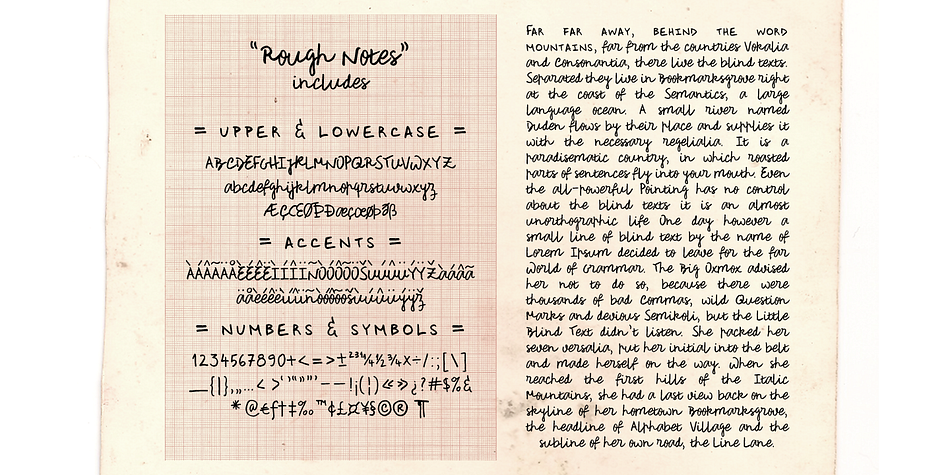 "Rough Notes"
includes
= UPPER & LOWERCASE =
ABCDEFGHIJKLMNOPQRSTUVWXYZ
abcdefghijklmnopqrstuvwxyz
ÆÇŒØÞÐæçœøþðß
= ACCENTS =
= NUMBERS & SYMBOLS =
1234567890+<=>±²³¹¼½¾×÷/:;[\]
*@€ƒ†‡‰™¢£¤¥§©® ¶
FAR FAR AWAY, BEHIND THE WORD
MOUNTAINS, far from the countries Vokalia
and Consonantia, there live the blind texts.
Separated they live in Bookmarksgrove right
at the coast of the Semantics, a large
language ocean. A small river named
Duden flows by their place and supplies it
with the necessary regelialia. It is a
paradisematic country, in which roasted
parts of sentences fly into your mouth. Even
the all-powerful Pointing has no control
about the blind texts it is an almost
unorthographic life One day however a
small line of blind text by the name of
Lorem Ipsum decided to leave for the far
World of Grammar. The Big Oxmox advised
her not to do so, because there were
thousands of bad Commas, wild Question
Marks and devious Semikoli, but the Little
Blind Text didn't listen. She packed her
seven versalia, put her initial into the belt
and made herself on the way. When she
reached the first hills of the Italic
Mountains, she had a last view back on the
skyline of her hometown Bookmarksgrove,
the headline of Alphabet Village and the
subline of her own road, the Line Lane.